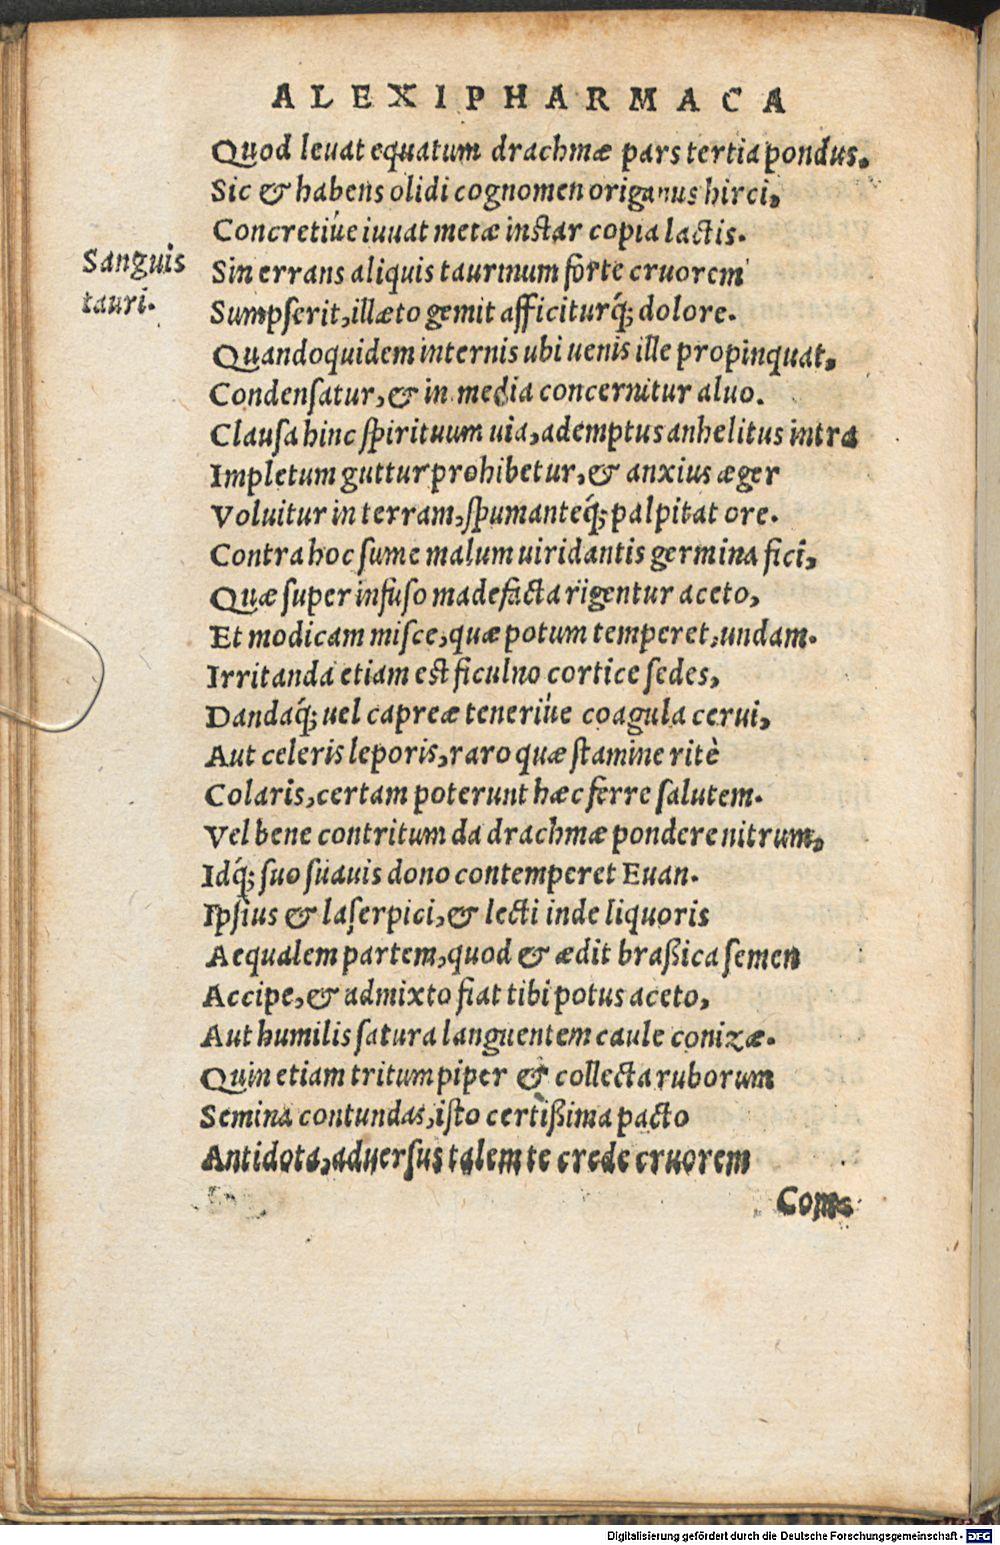 ALEXIPHARMACA
Quod leuat equatum drachmæ pars tertia pondus.
Sic & habens olidi cognomen origanus hirci,
Concretiúe iuuat metæ instar copia lactis.
Sanguis
tauri.
Sin errans aliquis taurinum forte cruorem
Sumpserit, illæto gemit afficiturq́; dolore.
Quandoquidem internis ubi uenis ille propinquat,
Condensatur, & in media concernitur aluo.
Clausa hinc spirituum uia, ademptus anhelitus intra
Impletum guttur prohibetur, & anxius æger
Voluitur in terram, spumanteq́; palpitat ore.
Contra hoc sume malum uiridantis germina fici,
Quæ super infuso madefacta rigentur aceto,
Et modicam misce, quæ potum temperet, undam.
Irritanda etiam est ficulno cortice sedes,
Dandaq́; uel capreæ teneriúe coagula cerui,
Aut celeris leporis, raro quæ stamine ritè
Colaris, certam poterunt hæc ferre salutem.
Vel bene contritum da drachmæ pondere nitrum,
Idq́; suo suauis dono contemperet Euan.
Ipsius & laserpici, & lecti inde liquoris
Aequalem partem, quod & ædit braßica semen
Accipe, & admixto fiat tibi potus aceto,
Aut humilis satura languentem caule conizæ.
Quin etiam tritum piper & collecta ruborum
Semina contundas, isto certißima pacto
Antidota, aduersus talem te crede cruorem
Digitalisierung gefördert durch die Deutsche Forschungsgemeinschaft - DFG